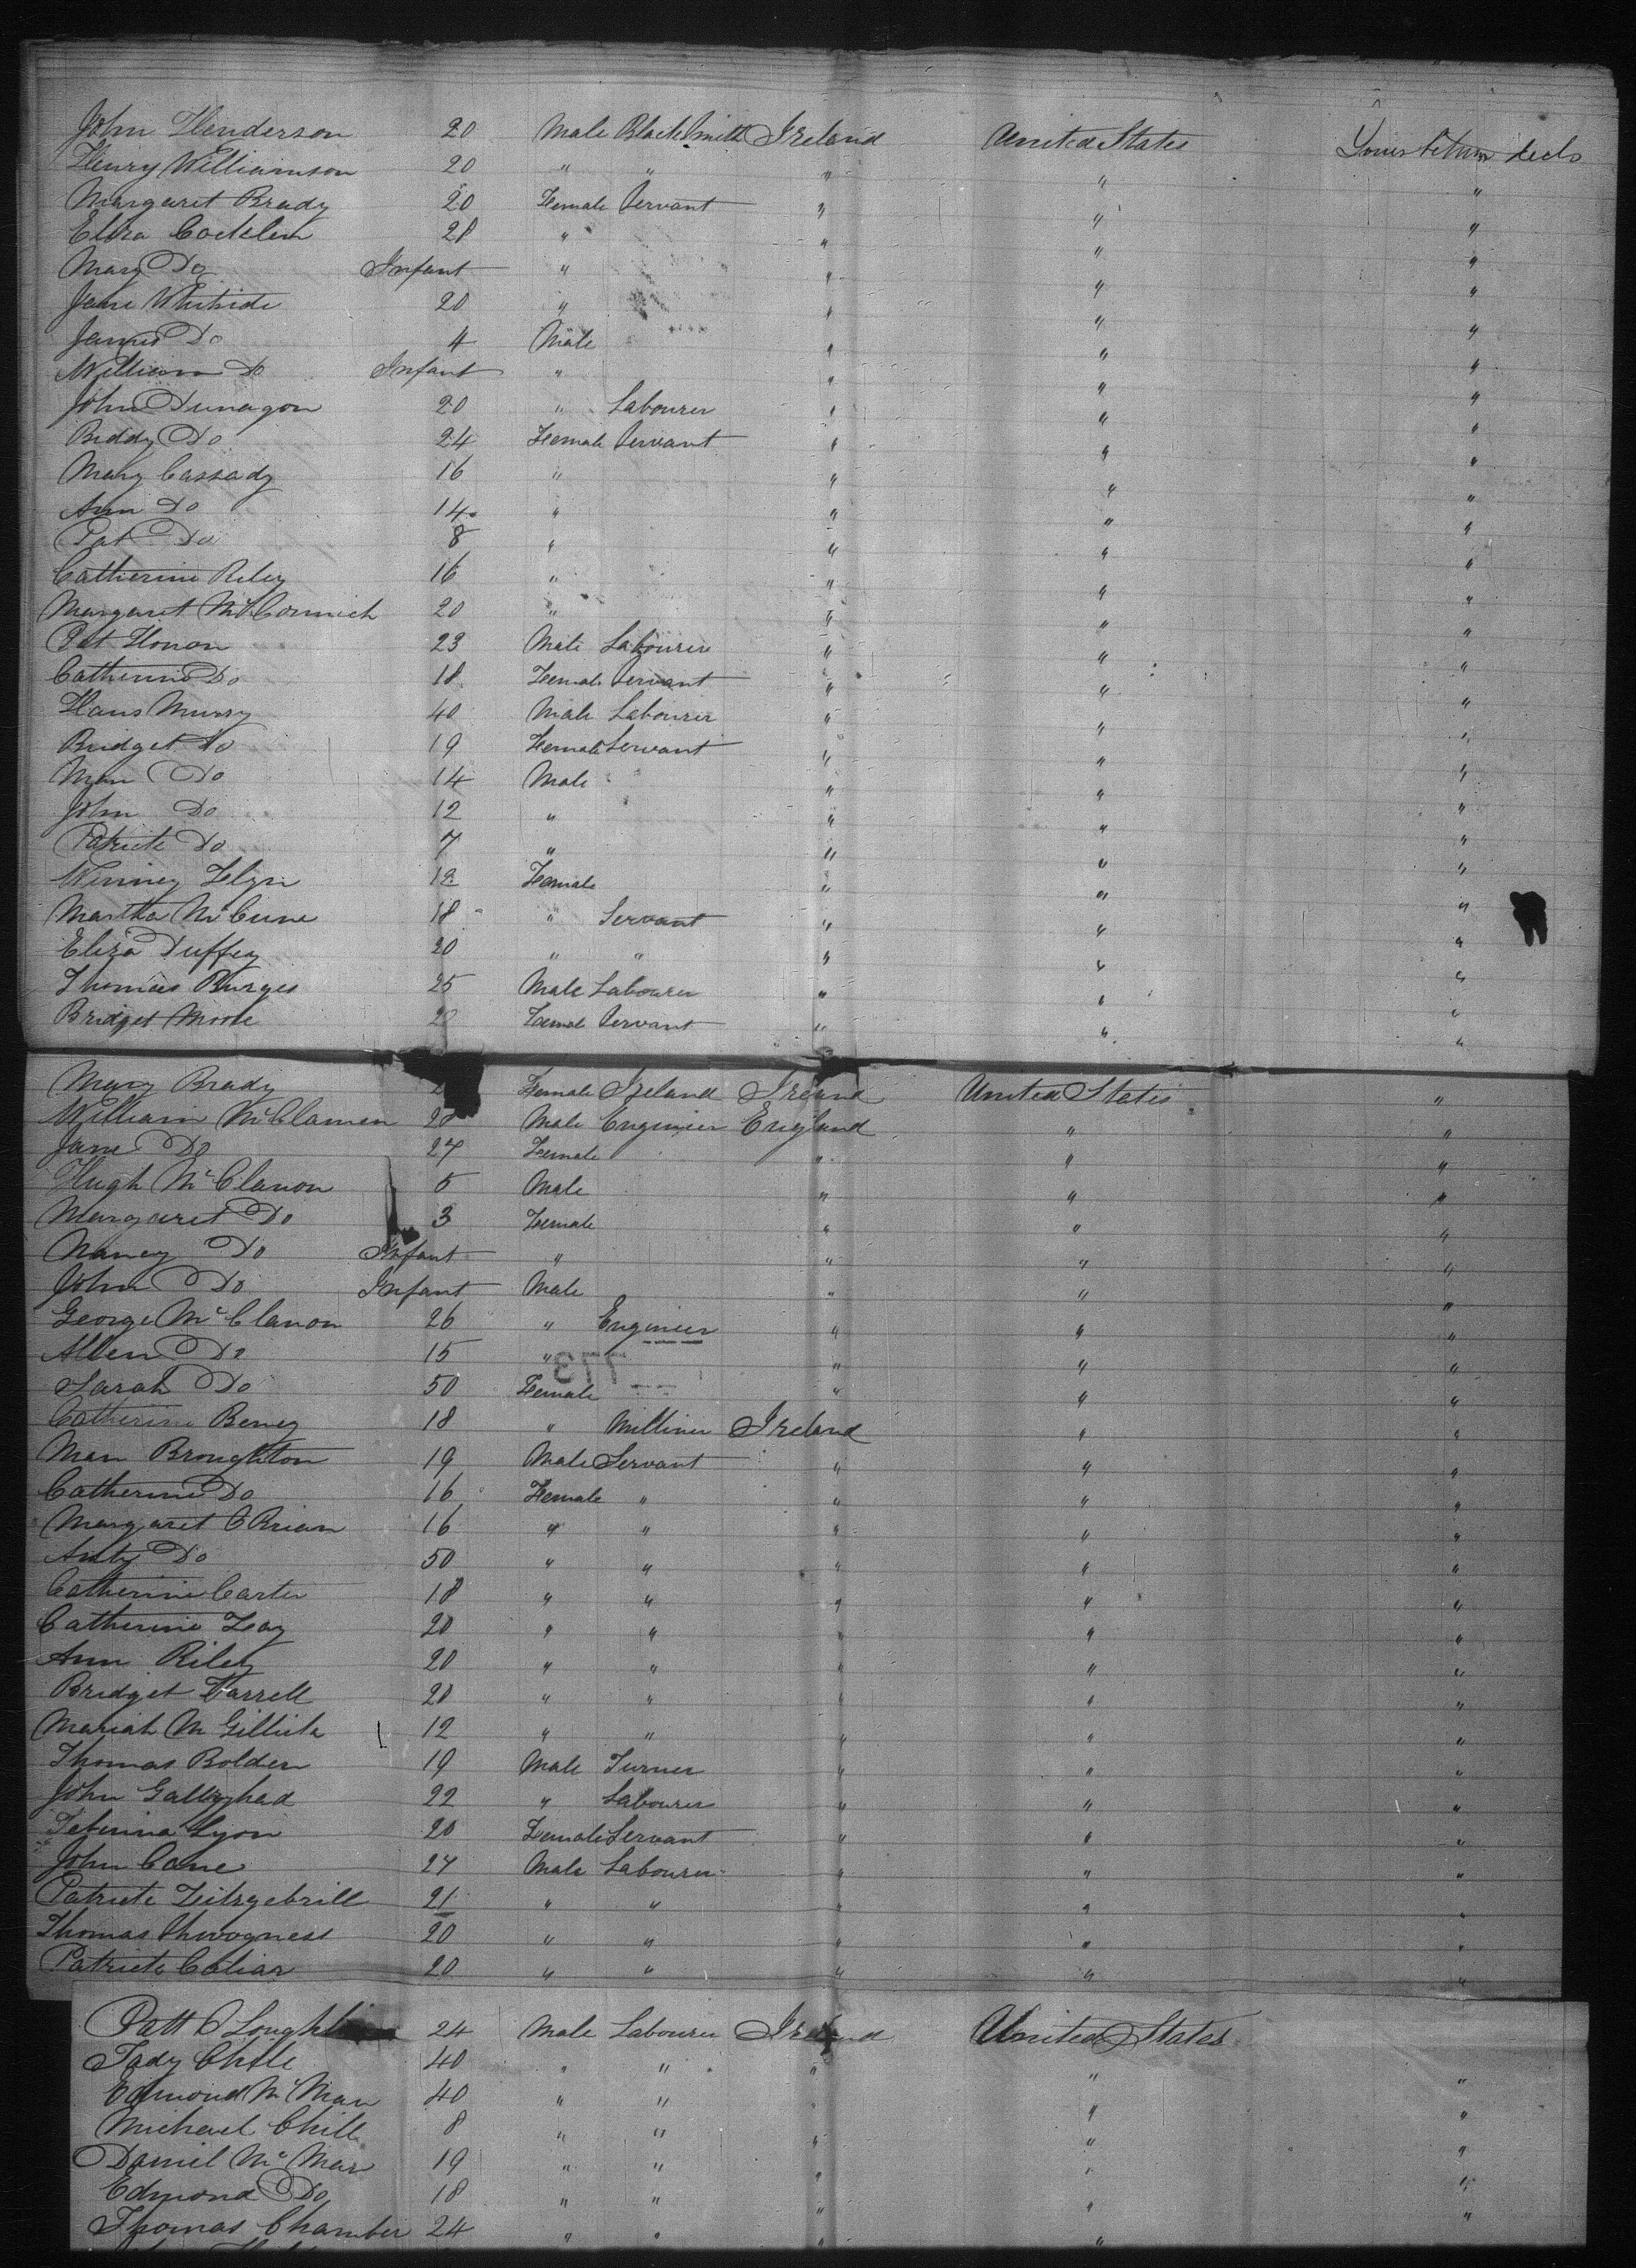 John Henderson 20 Male BlackSmith Ireland United States Lower between decks
Henry Williamson 20 " " " " "
Margaret Brady 20 Female Servant " " "
Eliza 28 " " " "
Mary Do Infant " " " "
Jane Whiteside 20 " " " "
James Do 4 Male " " "
William Do Infant " " " "
John Dunagon 20 " Labourer " " "
Biddy Do 24 Female Servant " " "
Mary Cassady 16 " " " "
Ann Do 14 " " " "
Pat Do 8 " " " "
Catherine Riley 16 " " " "
Margaret McCormick 20 " " " "
Pat Honan 23 Male Labourer " " "
Catherine Do 18 Female Servant " " "
Hans Murry 40 Male Labourer " " "
Bridget Do 19 Female Servant " " "
Man Do 14 Male " " "
John Do 12 " " " "
Patrick Do 7 " " " "
Winney 12 Female " " "
Martha McCune 18 " Servant " " "
Eliza Duffey 20 " " " " "
Thomas Burges 25 Male Labourer " " "
Bridget Moore Female Servant " " "
Mary Brady Female Ireland Ireland United States "
William McClamen 28 Male Engineer England " "
Jane Do 27 Female " " "
Hugh McClanon 5 Male " " "
Margaret Do 3 Female " " "
Nancy Do Infant " " " "
John Do Infant Male " " "
George McClanon 26 " Engineer " " "
Allen Do 15 " " " "
773
Sarah Do 50 Female " " "
Catherine Beney 18 " Milliner Ireland " "
Man Broughton 19 Male Servant " " "
Catherine Do 16 Female " " " "
Margaret OBrian 16 " " " " "
Do 50 " " " " "
Catherine Carter 18 " " " " "
Catherine Fay 20 " " " " "
Ann Riley 20 " " " " "
Bridget Farrell 20 " " " " "
Mariah 12 " " " " "
Thomas Bolden 19 Male Turner " " "
John 22 " Labourer " " "
Lyon 20 Female Servant " " "
John Cane 27 Male Labourer " " "
Patrick 21 " " " " "
Thomas 20 " " " " "
Patrick 20 " " " " "
Patt O 24 Male Labourer Ireland United States
Tady 40 " " " " "
Edmond McMan 40 " " " " "
Michael 8 " " " " "
Daniel McMan 19 " " " " "
Edmond Do 18 " " " " "
Thomas Chamber 24 " " " "